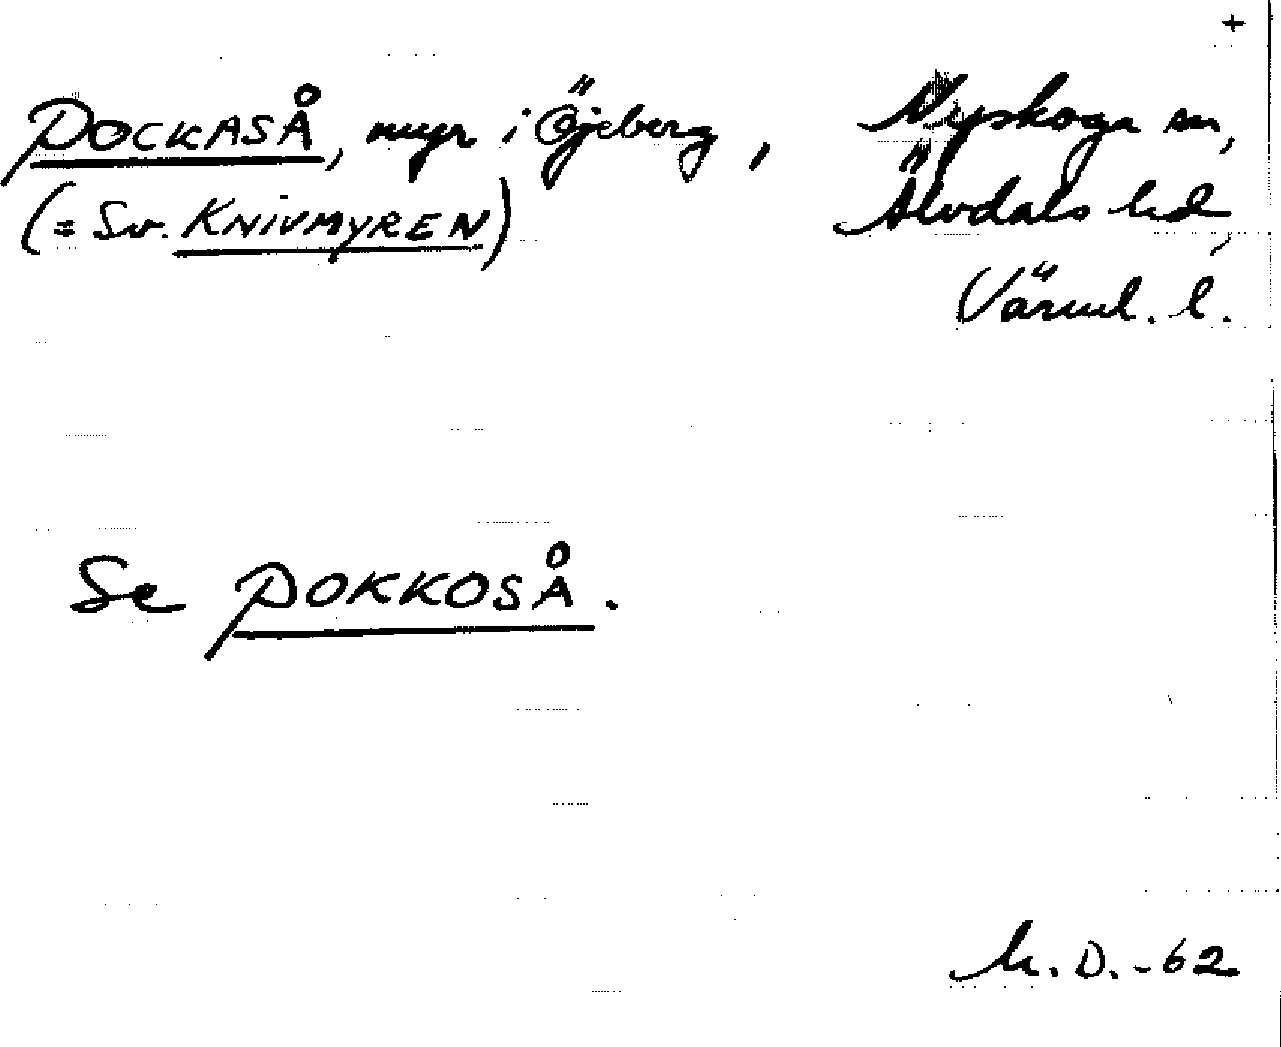 +
POCKASÅ, myr i Öjeberg, Nyskoga sn,
(= Sv. KNIVMYREN) Älvdals hd,
Värml. l.
Se POKKOSÅ.
M. D. -62